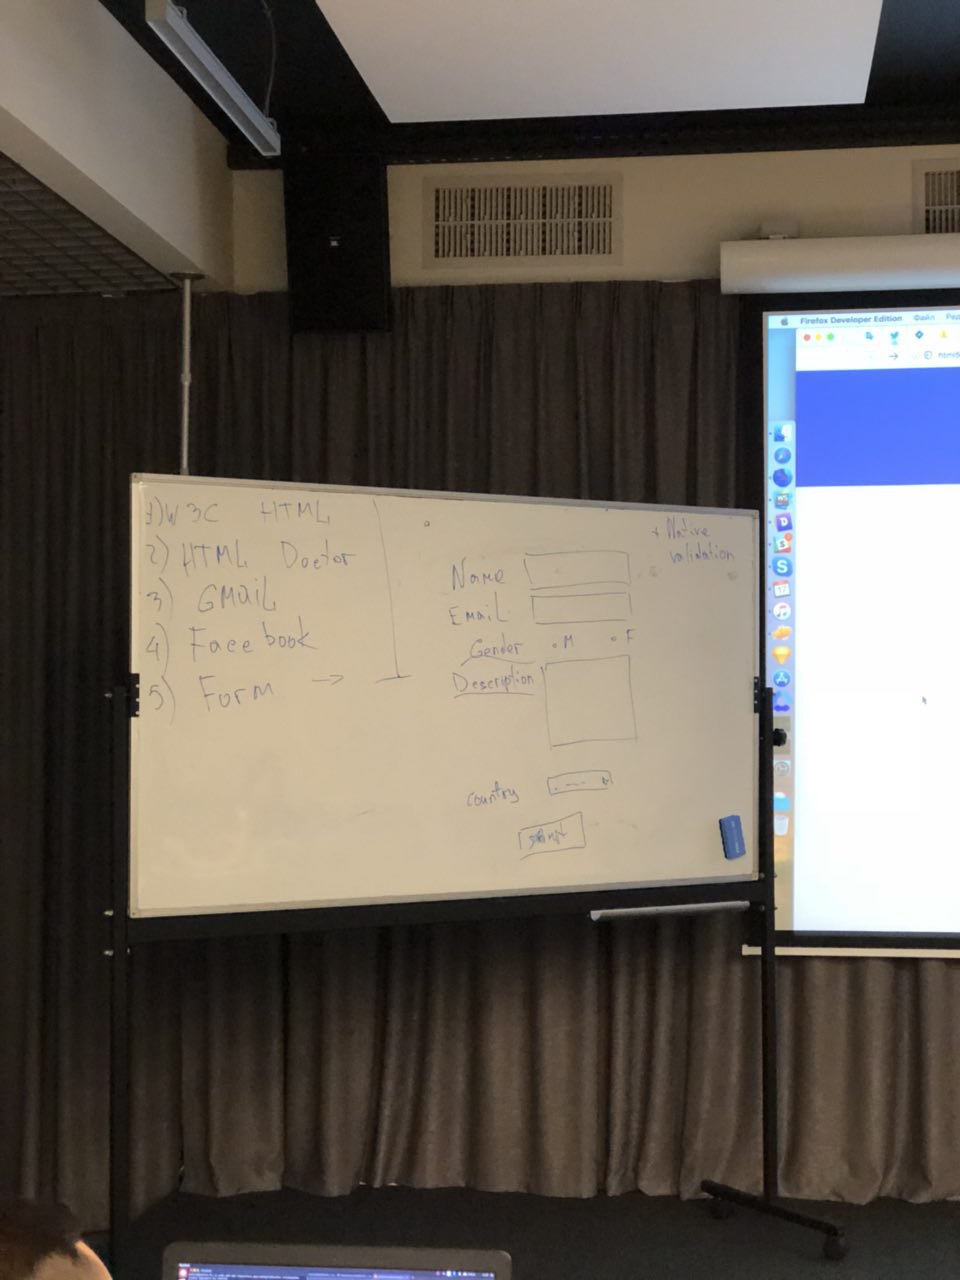 1) W3C HTML
2) HTML Doctor
3) GMail
4) Facebook
5) Form →
+ Native
validation
Name
Email
Gender M F
Description
country
submit
Firefox Developer Edition Файл